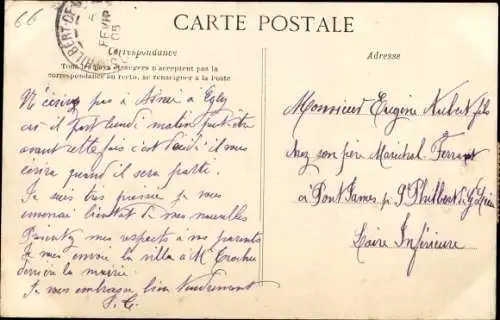 66
CARTE POSTALE
FEVR
05
Correspondance
Tous les pays étrangers n'acceptent pas la
correspondance au recto, se renseigner à la Poste
N'écrivez pas à Aimé à
car il part lundi matin peut être
avant cette fois c'est lundi il vous
écrira quand il sera parti.
Je suis très pressée je vous
envorrai bientôt de mes nouvelles
mes respects à vos parents
Je vous envoie la villa à M
derrière la mairie.
Je vous embrasse bien tendrement
Adresse
Monsieur Eugène Aubert fils
chez son père Maréchal Ferrant
à Pont James p. St Philbert de Gd Lieu
Loire Inférieure